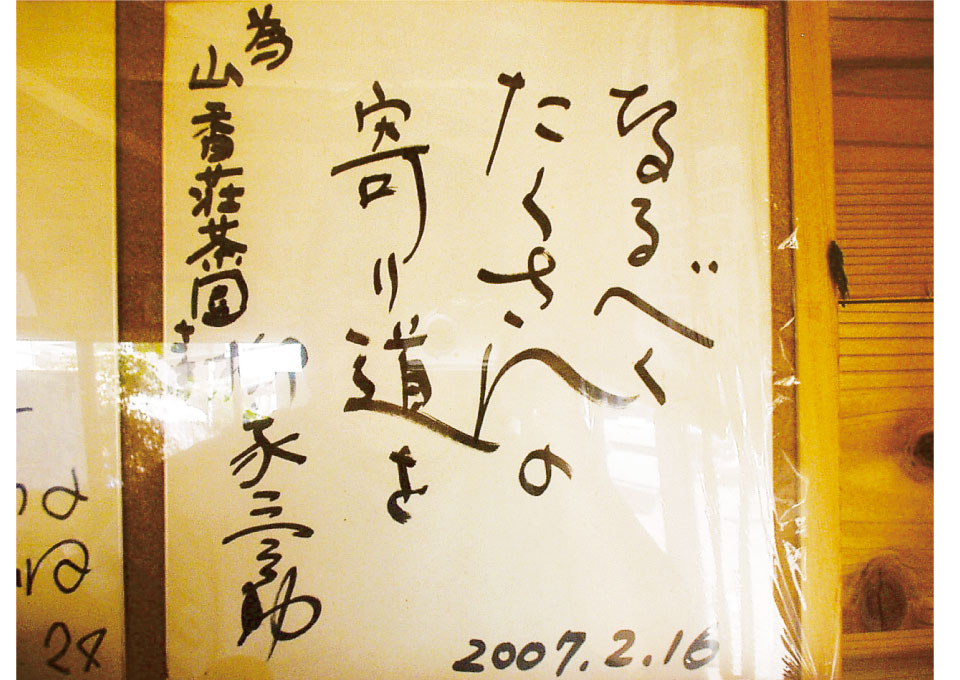 なるべく
たくさんの
寄り道を
為
山香荘茶園
柳家三之助
2007.2.16
28